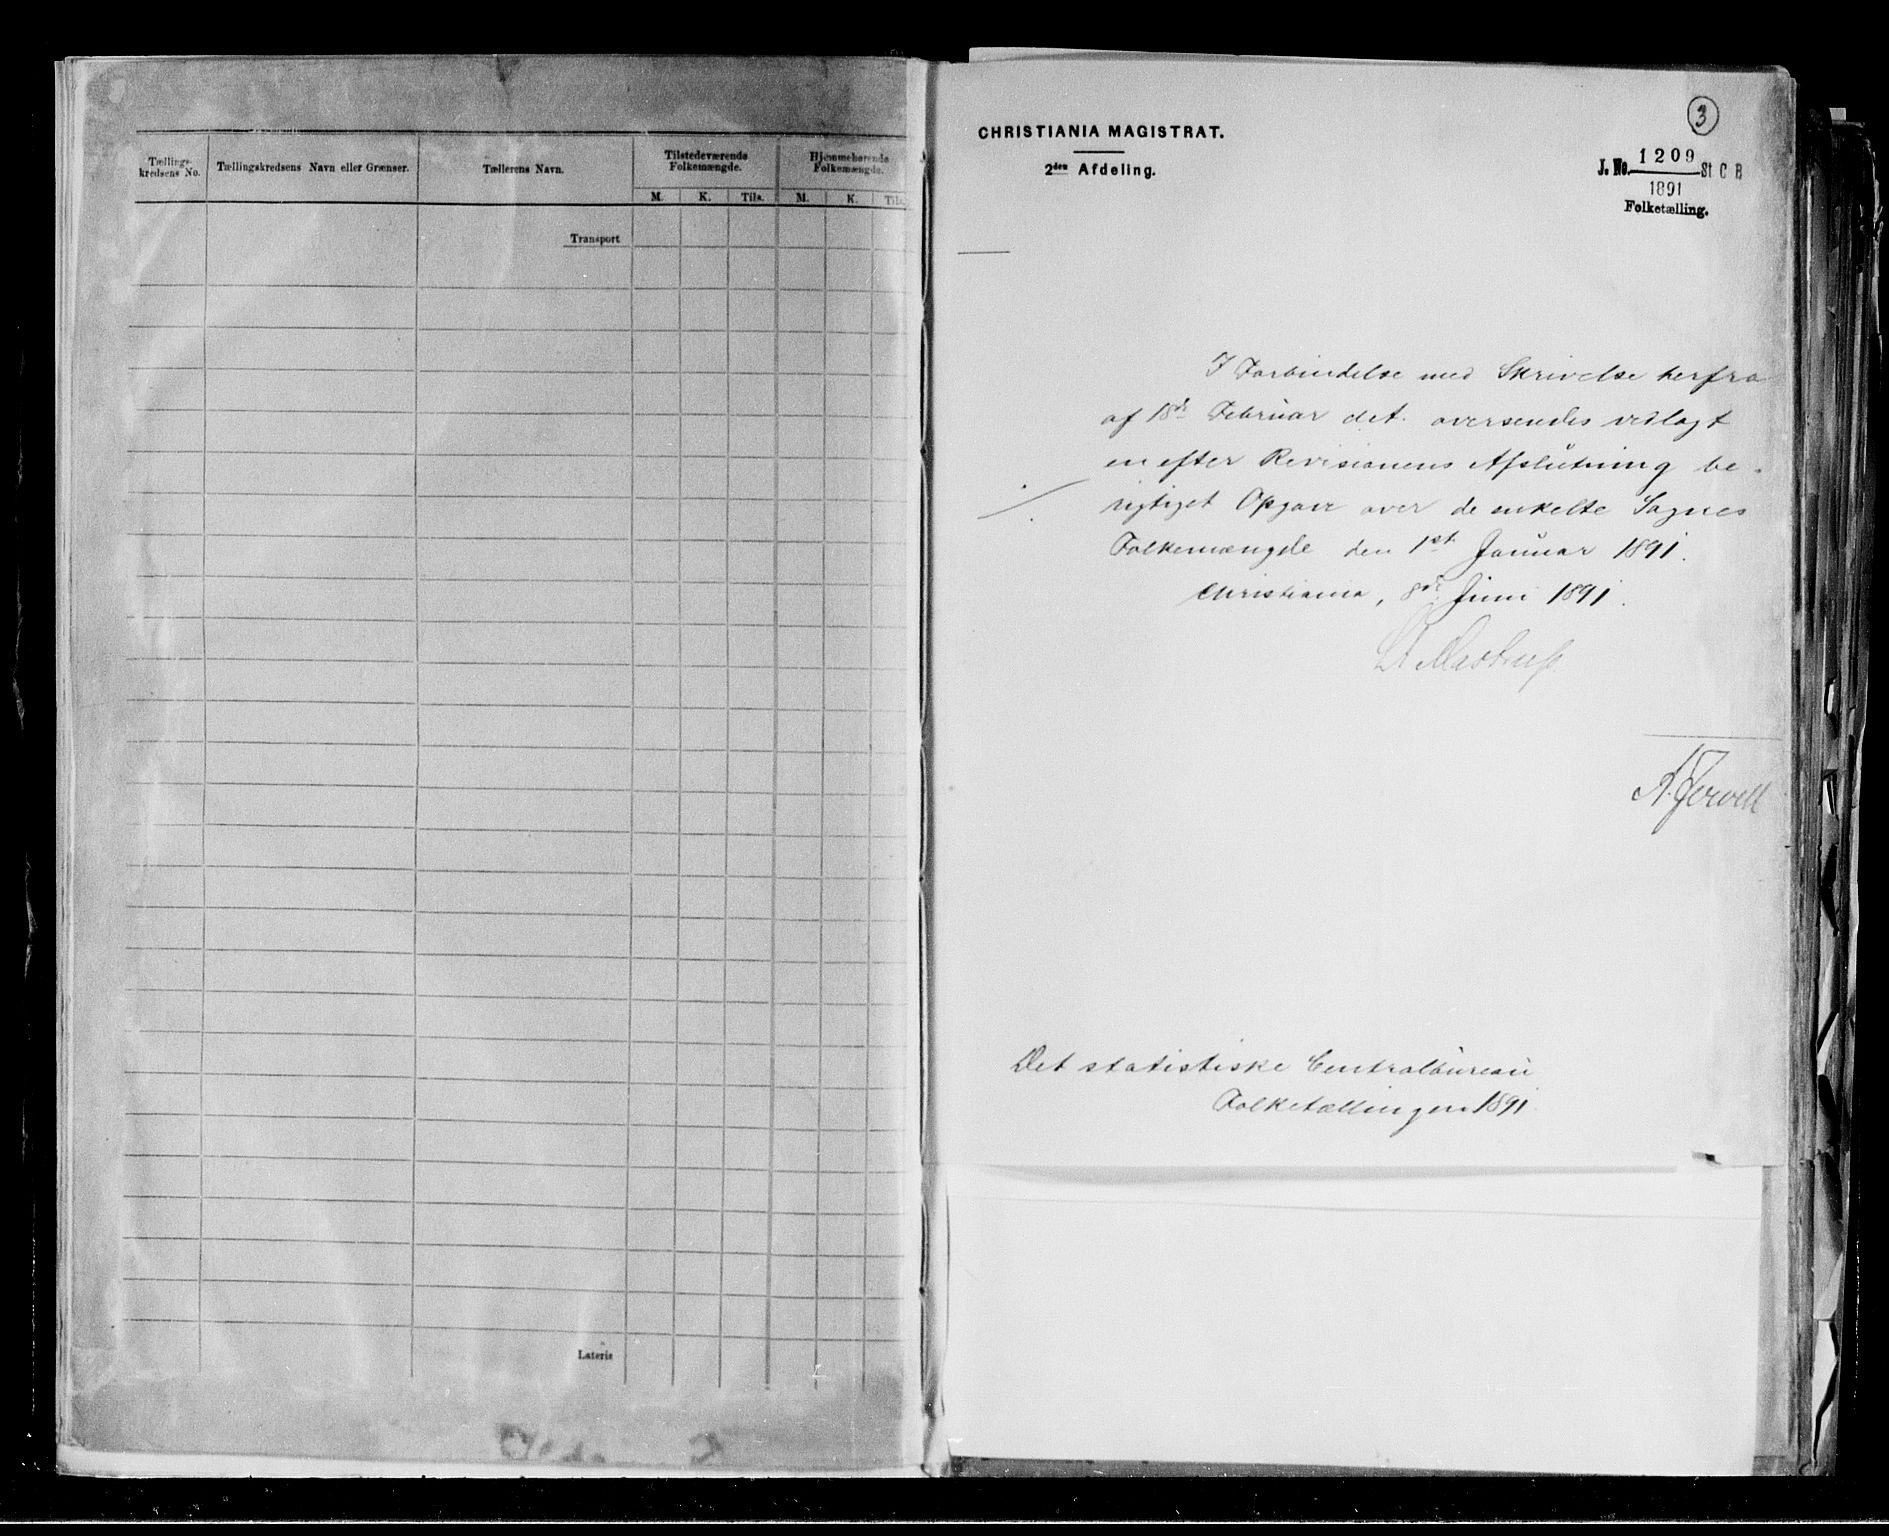 Tællings- kredsens No.
Tællingskredsens Navn eller Grænser.
Tællerens Navn.
Tilstedeværende Folkemængde.
Hjemmehørende Folkemængde.
M. K. Tils. M. K. Tils.
Transport
Lateris
3
CHRISTIANIA MAGISTRAT.
2den Afdeling.
J. No. 1209 St. C B
1891
Folketælling.
I Forbindelse med Skrivelse herfra
af 18de Februar det. oversendes vedlagt
en efter Revisionens Afslutning be-
rigtiget Opgave over de enkelte Sognes
Folkemængde den 1st Januar 1891.
Christiania, 8de Juni 1891.
A. Færden
Det statistiske Centralbureau
Folketællingen 1891.